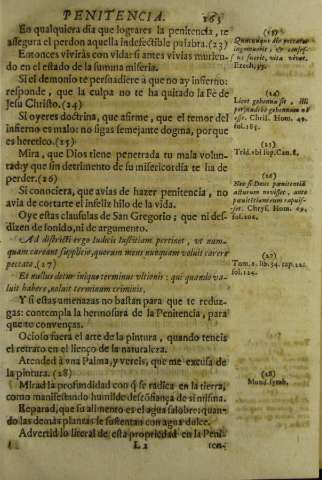 PENITENCIA. 163
En qualquiera dia que lograres la penitencia, te
assegura el perdon aquella indefectible palabra.(23)
Entonces vivirás con vida: si antes vivias murien-
do en el estado de la summa miseria.
Si el demonio te persuadiere à que no ay infierno:
responde, que la culpa no te ha quitado la Fè de
Jesu Christo.(24)
Si oyeres doctrina, que afirme, que el temor del
infierno es malo: no sigas semejante dogma, porque
es heretico.(25)
Mira, que Dios tiene penetrada tu mala volun-
tad: y que sin detrimento de su misericordia te ha de
perder.(26)
Si conociera, que avias de hazer penitencia, no
avia de cortarte el infeliz hilo de la vida.
Oye estas clausulas de San Gregorio; que ni des-
dizen de sonido, ni de argumento.
Ad districti ergo Iudicis Iustitiam pertinet, ut num-
quam careant supplicio, quorum mens nunquam voluit carere
peccato.(27)
Et nullus detur iniquo terminus ultionis: qui quandò va-
luit habere, noluit terminum criminis.
Y si estas umenazas no bastan para que te reduz-
gas: contempla la hermosura de la Penitencia, para
que to convenças.
Ocioso fuera el arte de la pintura, quando teneis
el retrato en el lienço de la naturaleza.
Atended à una Palma, y vereis, que me escusa de
la pintura.(28)
Mirad la profundidad con q̃ se radica en la tierra,
como manifestando humilde descõfiança de si misma.
Reparad, que su alimento es el agua salobre: quan-
do las demàs plantas se sustentan con agua dulce.
Advertid lo literal de esta propriedad en la Peni-
L2 ten-
(23)
Quacumque die peccator
ingemuerit, & confes-
sus fuerit, vita vivet.
Ezech.
(24)
Licet gehenna sit, illi
persuadebo gehennam nõ
esse. Chris. Hom. 49.
fol.185.
(25)
Trid. ubi sup. Can. 8.
(26)
Nec si Deus pænitentiã
acturum novisset, ante
pænitentiam eum rapuis-
set. Chrys. Hom. 49.
fol.202.
(27)
Tom. 2. lib. 34. cap. 12.
fol.124.
(28)
Mund. symb.